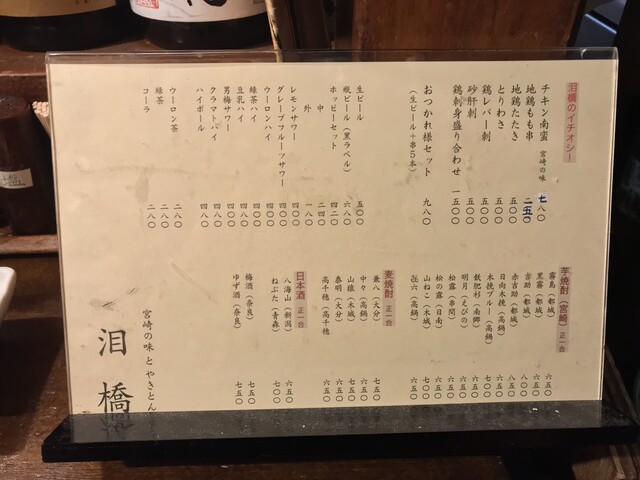 泪橋のイチオシー
チキン南蛮 宮崎の味 七八〇
地鶏もも串 二五〇
地鶏たたき 五〇〇
とりわさ 五〇〇
鶏レバー刺 五〇〇
砂肝刺 五〇〇
鶏刺身盛り合わせ 一五〇〇
おつかれ様セット 九八〇
(生ビール+串5本)
生ビール 五〇〇
瓶ビール(黒ラベル) 六八〇
ホッピーセット 四二〇
中 二四〇
外 一八〇
レモンサワー 四〇〇
グレープフルーツサワー 四〇〇
ウーロンハイ 四〇〇
緑茶ハイ 四〇〇
豆乳ハイ 四〇〇
男梅サワー 四八〇
クラマトハイ 四八〇
ハイボール 四八〇
ウーロン茶 二八〇
緑茶 二八〇
コーラ 二八〇
芋焼酎(宮崎) 正一合
霧島(都城) 六五〇
黒霧(都城) 六五〇
吉助(都城) 八五〇
赤吉助(都城) 八五〇
日向木挽(高鍋) 六五〇
木挽ブルー(高鍋) 七〇〇
飫肥杉(南郷) 六五〇
明月(えびの) 六五〇
松露(串間) 六五〇
松の露(日南) 六五〇
山ねこ(木城) 七〇〇
㐂六(高鍋) 六五〇
麦焼酎 正一合
兼八(大分) 七五〇
中々(高鍋) 六五〇
山猿(木城) 六五〇
泰明(大分) 六五〇
高千穂(高千穂) 六五〇
日本酒 正一合
八海山(新潟) 六五〇
ねぶた(青森) 七〇〇
梅酒(奈良) 七五〇
ゆず酒(奈良) 七五〇
宮崎の味とやきとん
泪橋